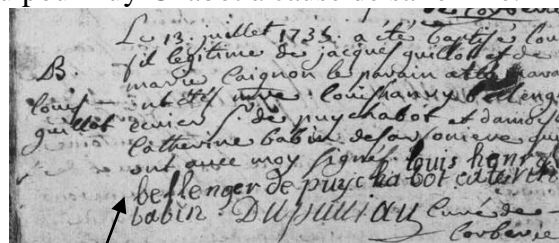 Le 13 juillet 1735 a été baptisé Louis
fil legitime de jacques guillot et de
marie Caignon le parain et la mare
B.
louis
guillot
ont été mre louis hanry bellenger
écuier Sr de puychabot et damoiselle
Catherine babin desarsoniere qui
ont avec moy signés. louis henry
bellenger de puychabot caterine
babin. Dupuiiau Curé de
Corberie